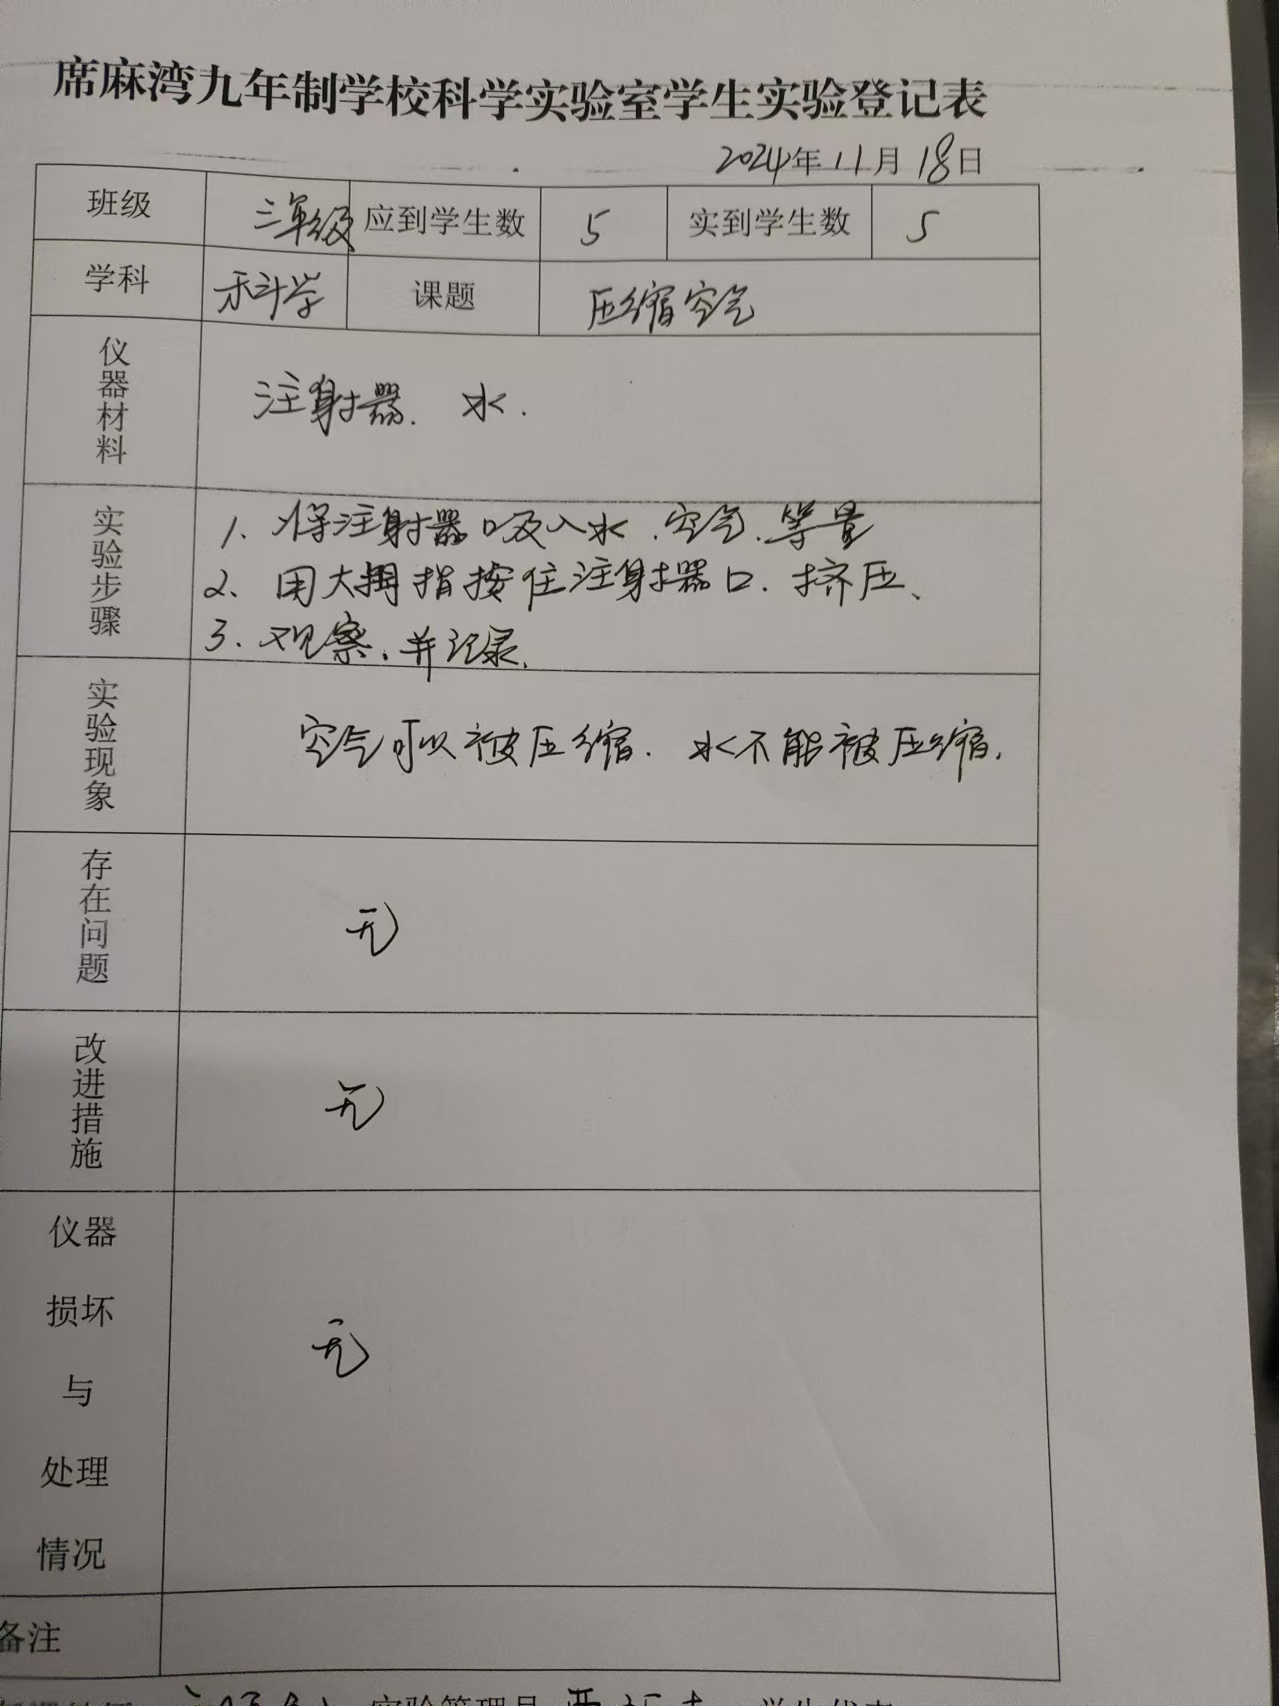 席麻湾九年制学校科学实验室学生实验登记表
2024年11月18日
班级 三年级 应到学生数 5 实到学生数 5
学科 科学 课题 压缩空气
仪器材料 注射器. 水.
实验步骤
1. 将注射器吸入水.空气.等量
2. 用大拇指按住注射器口. 挤压、
3. 观察.并记录.
实验现象 空气可以被压缩. 水不能被压缩.
存在问题 无
改进措施 无
仪器
损坏
与
处理
情况
无
备注
实验管理员 学生代表